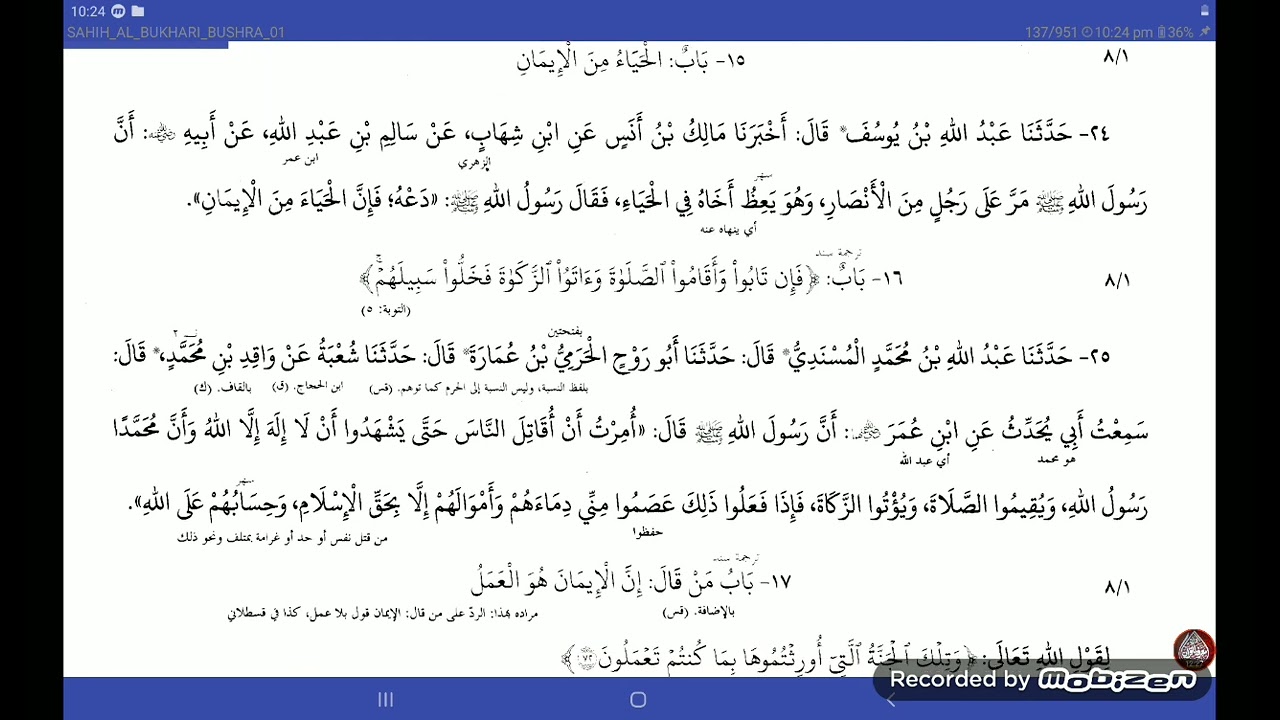 10:24
SAHIH_AL_BUKHARI_BUSHRA_01 137/951 10:24 pm 36%
١٥- بَابٌ: الْحَيَاءُ مِنَ الْإِيمَانِ ٨/١
٢٤- حَدَّثَنَا عَبْدُ اللهِ بْنُ يُوسُفَ* قَالَ: أَخْبَرَنَا مَالِكُ بْنُ أَنَسٍ عَنِ ابْنِ شِهَابٍ، عَنْ سَالِمِ بْنِ عَبْدِ اللهِ، عَنْ أَبِيهِ ﵁: أَنَّ
الزهري ابن عمر
سهر
رَسُولَ اللهِ ﷺ مَرَّ عَلَى رَجُلٍ مِنَ الْأَنْصَارِ، وَهُوَ يَعِظُ أَخَاهُ فِي الْحَيَاءِ، فَقَالَ رَسُولُ اللهِ ﷺ: «دَعْهُ؛ فَإِنَّ الْحَيَاءَ مِنَ الْإِيمَانِ».
أي ينهاه عنه
ترجمة سند
١٦- بَابٌ: ﴿فَإِن تَابُوا۟ وَأَقَامُوا۟ ٱلصَّلَوٰةَ وَءَاتَوُا۟ ٱلزَّكَوٰةَ فَخَلُّوا۟ سَبِيلَهُمْۚ﴾ ٨/١
(التوبة: ٥)
بفتحتين
٢٥- حَدَّثَنَا عَبْدُ اللهِ بْنُ مُحَمَّدٍ الْمُسْنَدِيُّ* قَالَ: حَدَّثَنَا أَبُو رَوْحٍ الْحَرَمِيُّ بْنُ عُمَارَةَ* قَالَ: حَدَّثَنَا شُعْبَةُ عَنْ وَاقِدِ بْنِ مُحَمَّدٍ،* قَالَ:
بلفظ النسبة، وليس النسبة إلى الحرم كما توهم. (قس) ابن الحجاج. (ق) بالقاف. (ك)
سَمِعْتُ أَبِي يُحَدِّثُ عَنِ ابْنِ عُمَرَ ﵄: أَنَّ رَسُولَ اللهِ ﷺ قَالَ: «أُمِرْتُ أَنْ أُقَاتِلَ النَّاسَ حَتَّى يَشْهَدُوا أَنْ لَا إِلَهَ إِلَّا اللهُ وَأَنَّ مُحَمَّدًا
هو محمد أي عبد الله
سهر
رَسُولُ اللهِ، وَيُقِيمُوا الصَّلَاةَ، وَيُؤْتُوا الزَّكَاةَ، فَإِذَا فَعَلُوا ذَلِكَ عَصَمُوا مِنِّي دِمَاءَهُمْ وَأَمْوَالَهُمْ إِلَّا بِحَقِّ الْإِسْلَامِ، وَحِسَابُهُمْ عَلَى اللهِ».
حفظوا من قتل نفس أو حد أو غرامة بمتلف ونحو ذلك
ترجمة سند
١٧- بَابُ مَنْ قَالَ: إِنَّ الْإِيمَانَ هُوَ الْعَمَلُ ٨/١
بالإضافة. (قس) مراده بهذا: الردّ على من قال: الإيمان قول بلا عمل، كذا في قسطلاني
لِقَوْلِ اللهِ تَعَالَى: ﴿وَتِلْكَ ٱلْجَنَّةُ ٱلَّتِىٓ أُورِثْتُمُوهَا بِمَا كُنتُمْ تَعْمَلُونَ ٧٢﴾
Recorded by mobizen